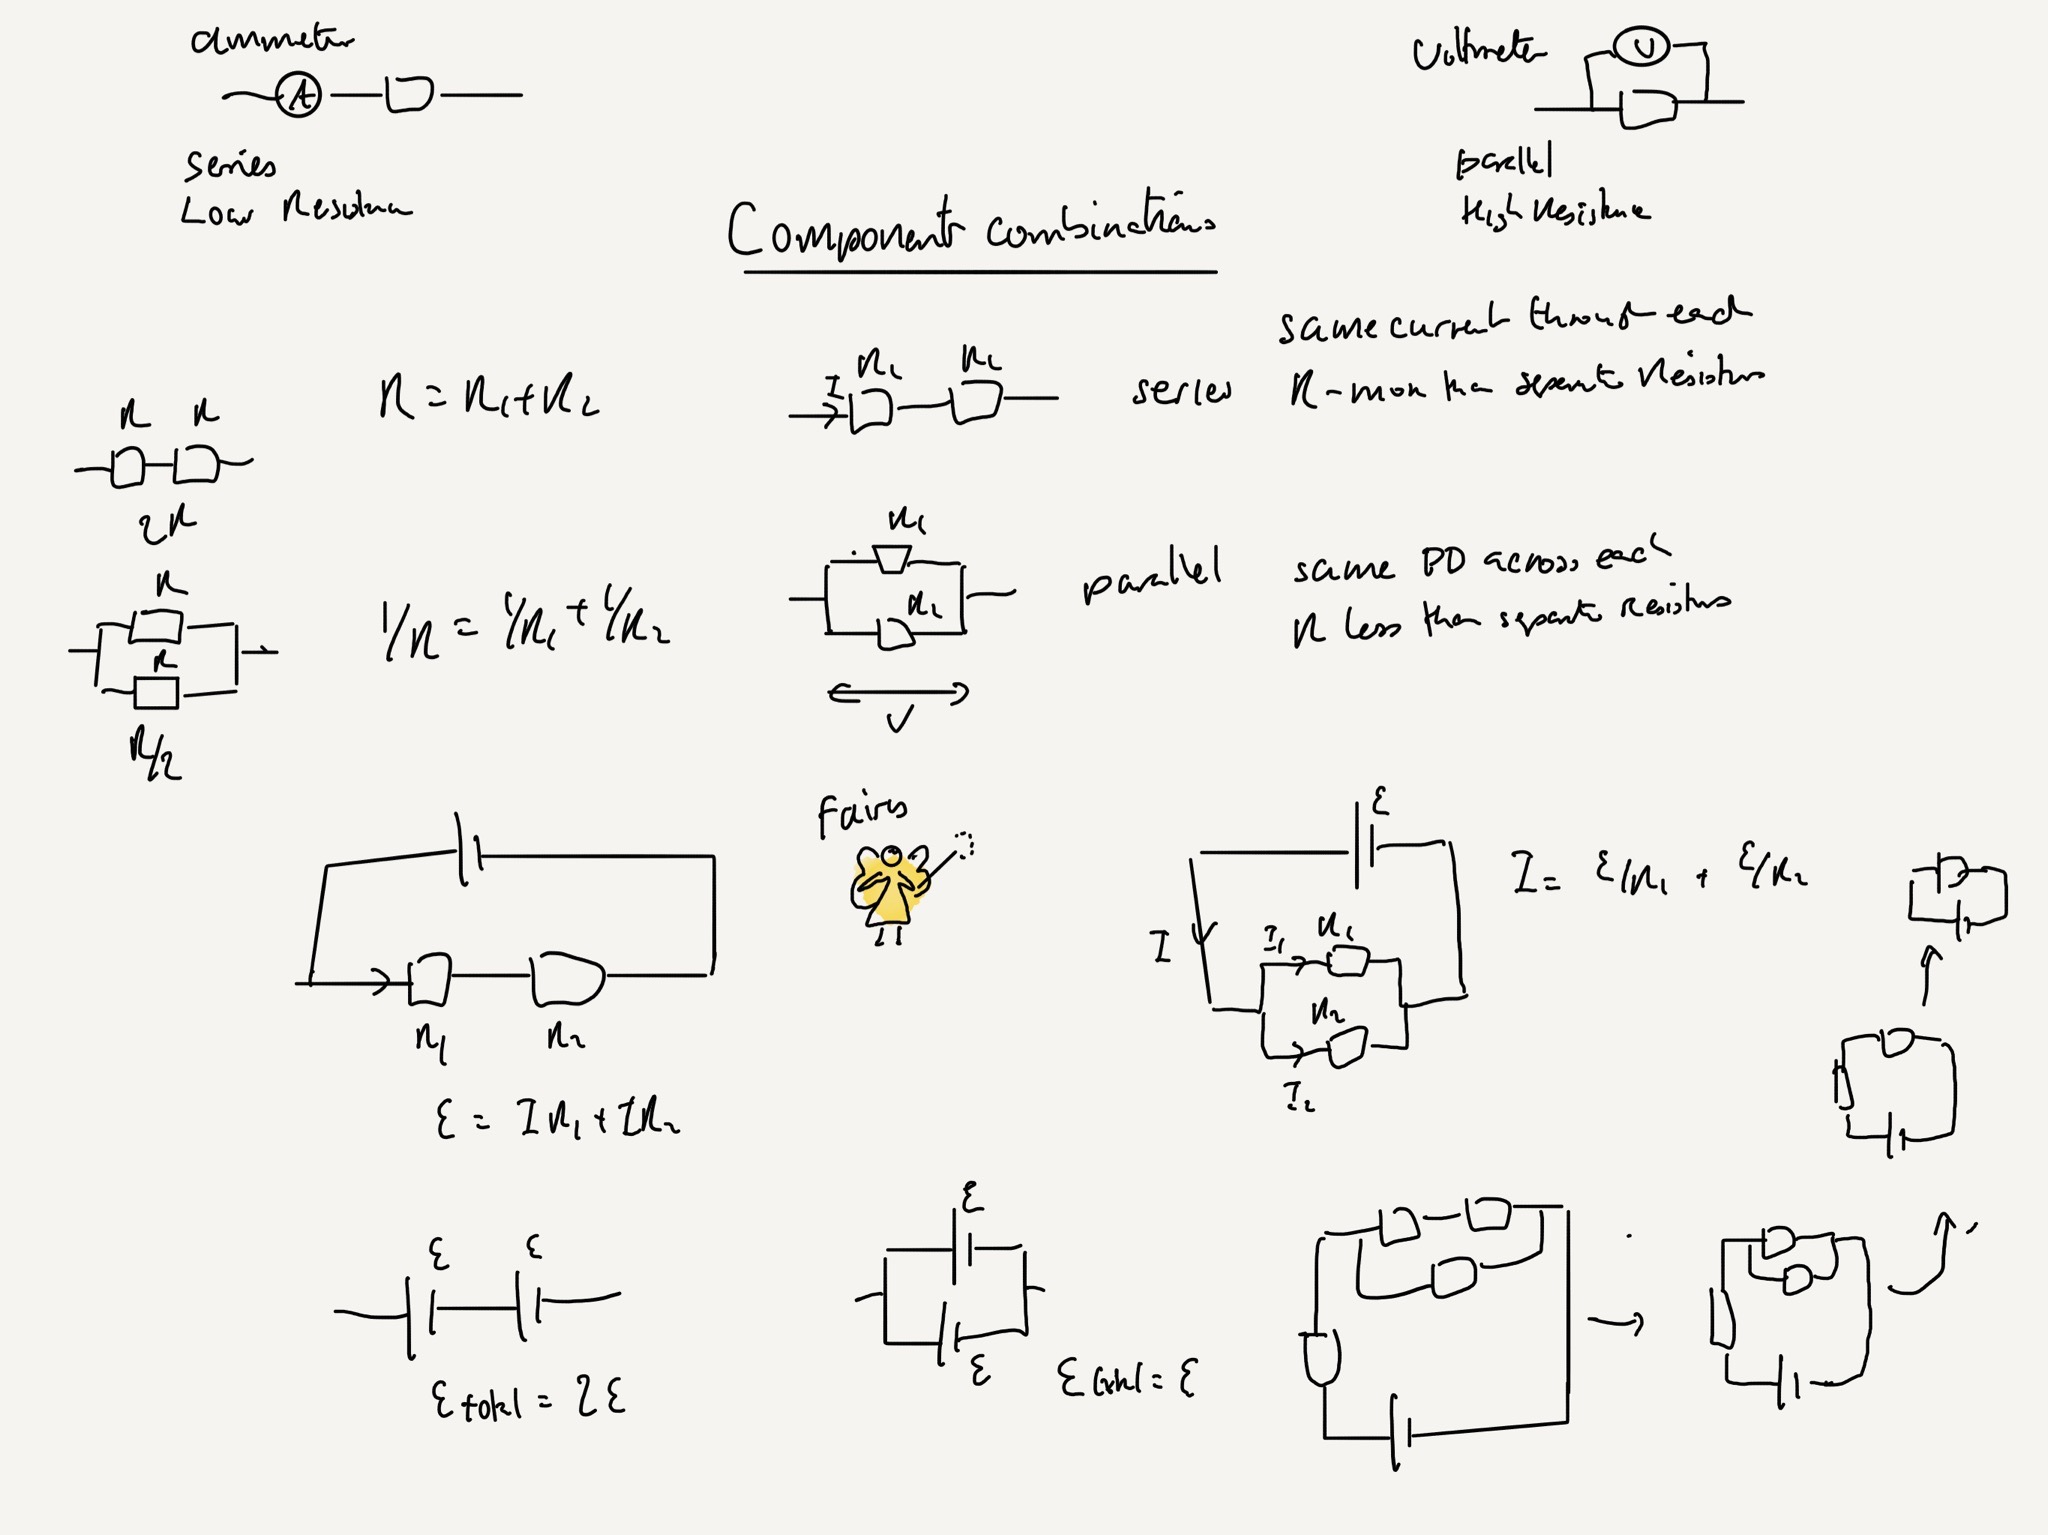 ammeter
A
series
Low Resistance
Voltmeter
V
parallel
High Resistance
Component combinations
R R
2R
R = R1 + R2
I R1 R2
series
same current through each
R - more than separate resistors
R
R
R/2
1/R = 1/R1 + 1/R2
R1
R2
V
parallel
same PD across each
R less than separate resistors
R1 R2
ε = IR1 + IR2
Fairies
ε
I
I1 R1
R2
I2
I = ε/R1 + ε/R2
ε ε
ε total = 2ε
ε
ε
ε total = ε